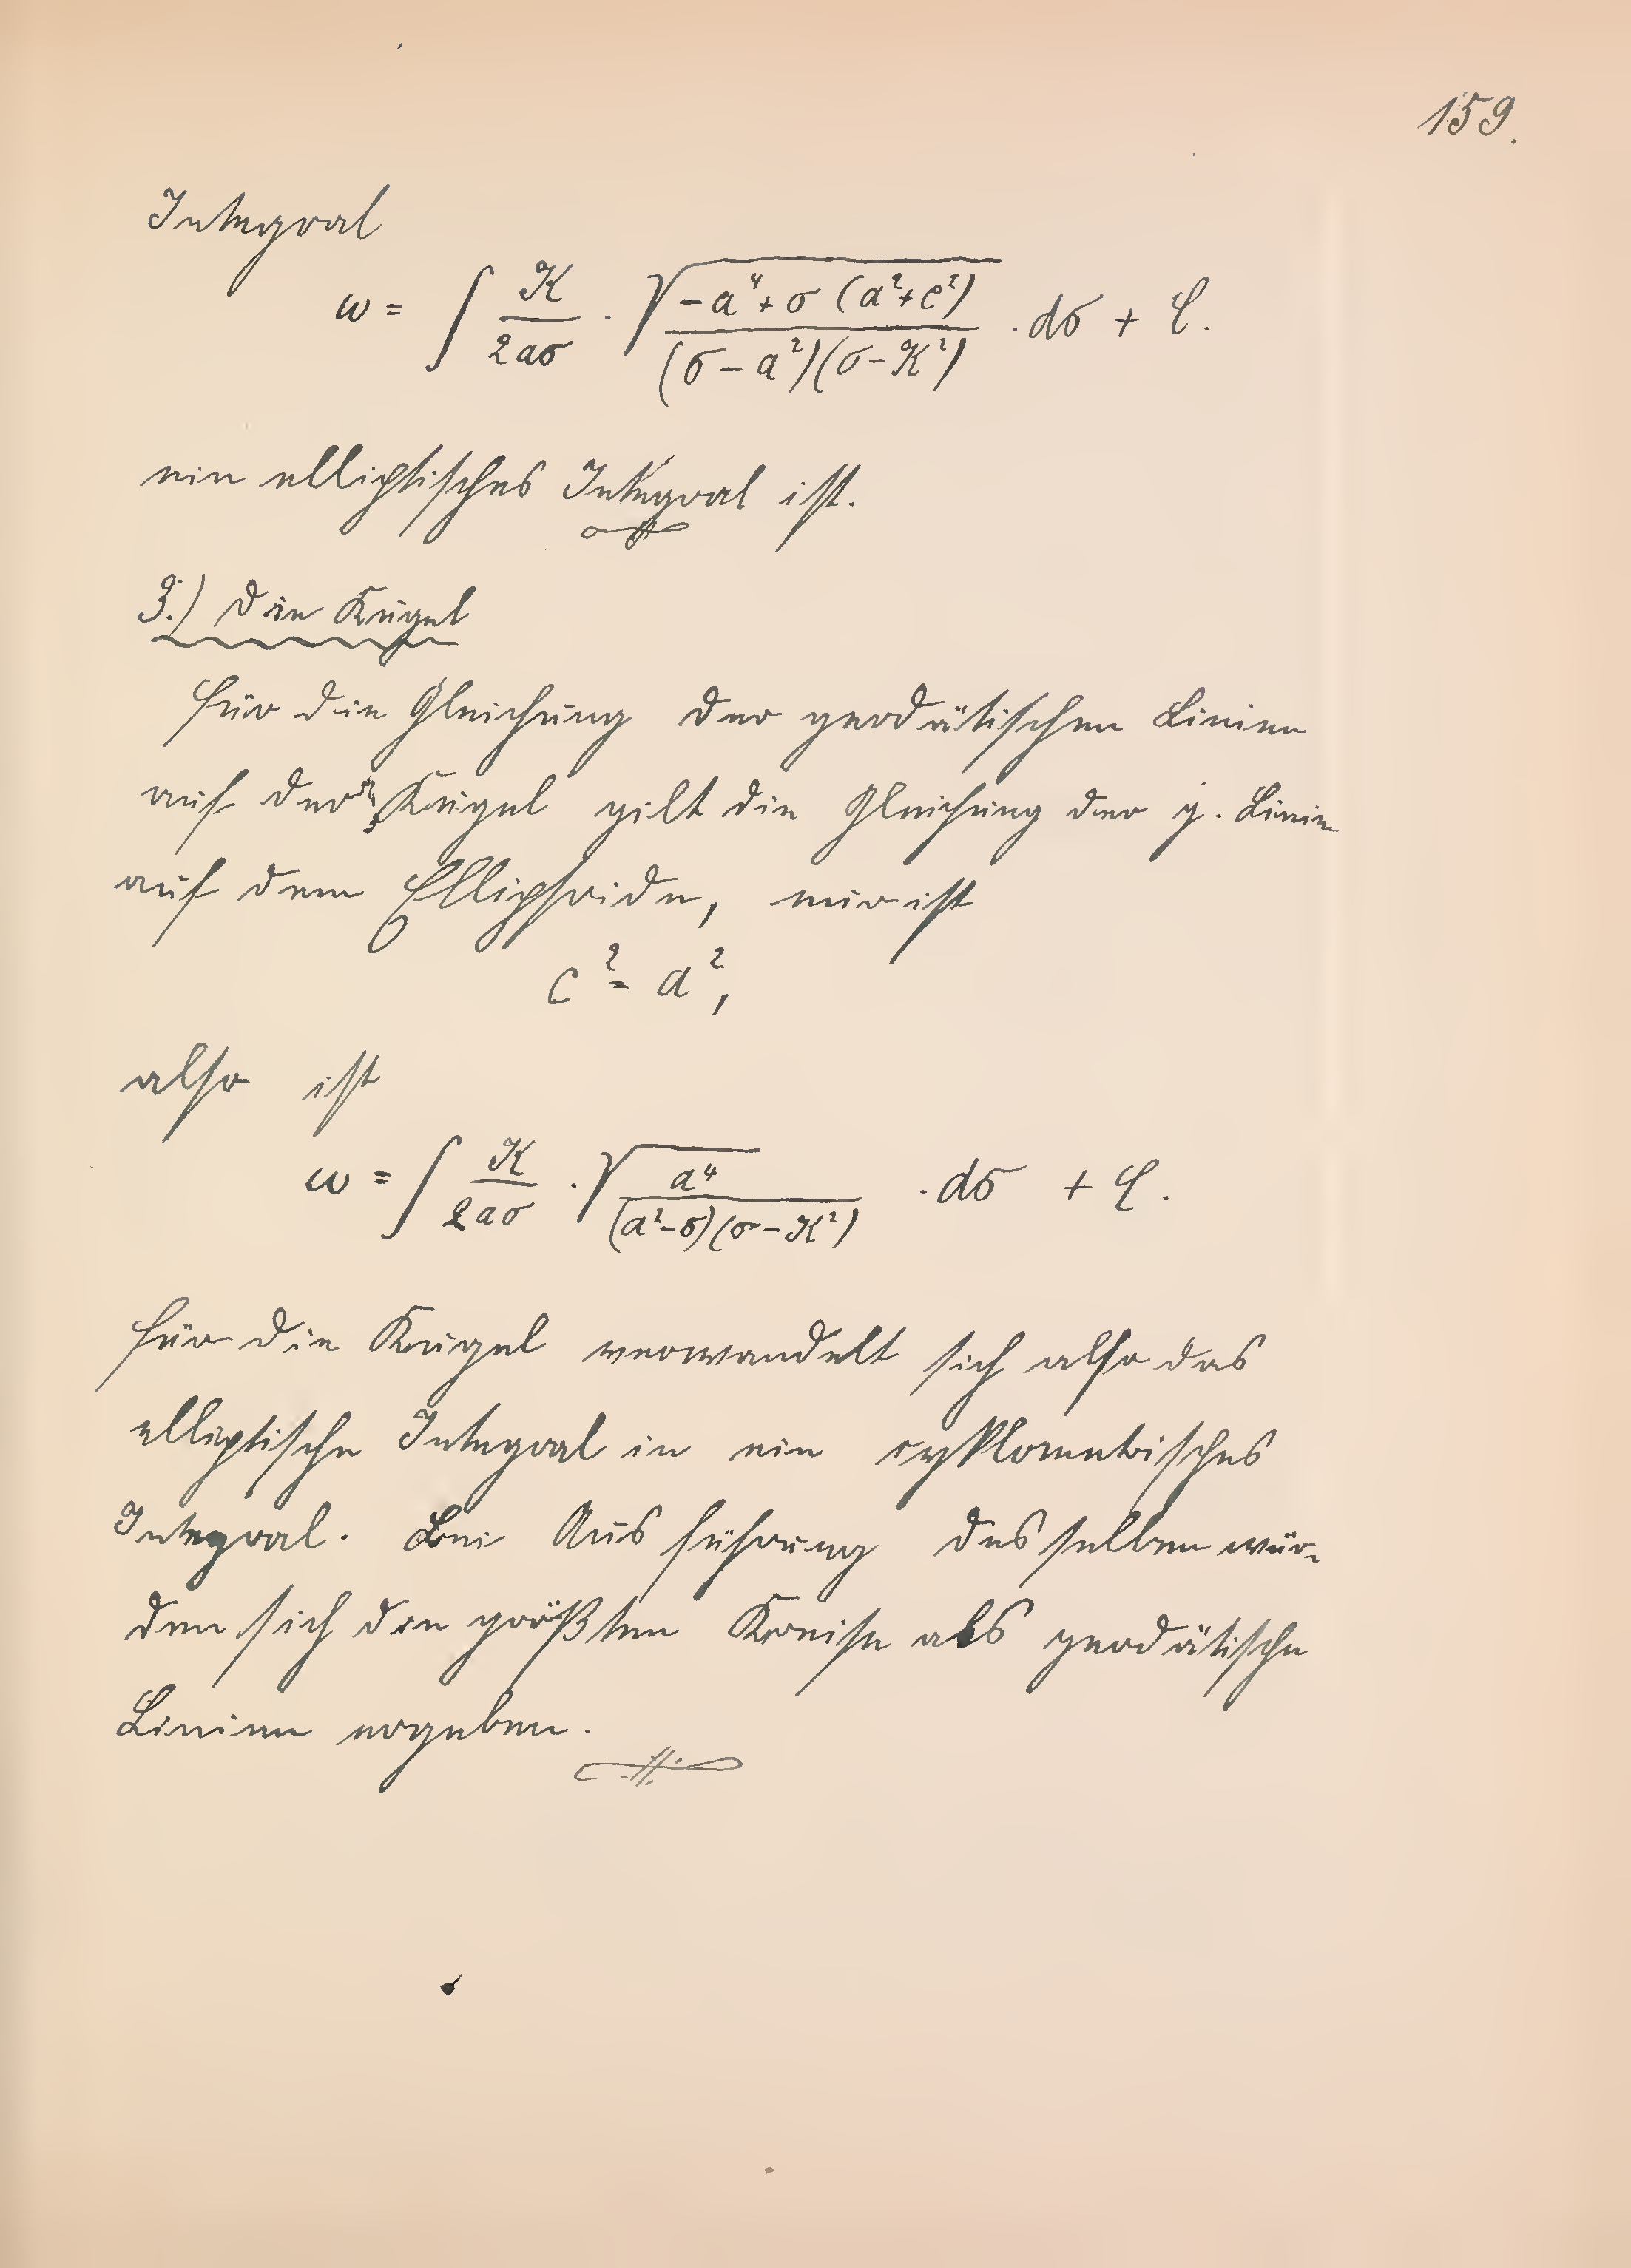 159.
Integral
ω = ∫ K/(2aσ) · √((-a⁴ + σ(a²+c²))/((σ-a²)(σ-K²))) · dσ + C.
ein elliptisches Integral ist.
3.) Die Kugel
Für die Gleichung der geodätischen Linien
auf der Kugel gilt die Gleichung der g. Linien
auf dem Ellipsoide, nur ist
c² = a²,
also ist
ω = ∫ K/(2aσ) · √(a⁴/((a²-σ)(σ-K²))) · dσ + C.
Für die Kugel verwandelt sich also das
elliptische Integral in ein cyklometrisches
Integral. Bei Ausführung desselben wür-
den sich die größten Kreise als geodätische
Linien ergeben.